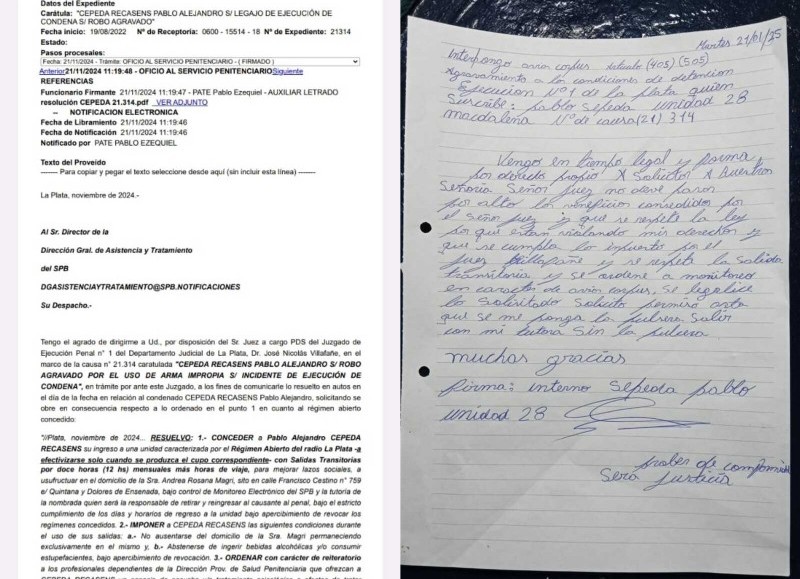 Datos del Expediente
Carátula: "CEPEDA RECASENS PABLO ALEJANDRO S/ LEGAJO DE EJECUCIÓN DE
CONDENA S/ ROBO AGRAVADO"
Fecha inicio: 19/08/2022 Nº de Receptoría: 0600 - 15514 - 18 Nº de Expediente: 21314
Estado:
Pasos procesales:
Fecha: 21/11/2024 - Trámite: OFICIO AL SERVICIO PENITENCIARIO - ( FIRMADO )
Anterior21/11/2024 11:19:48 - OFICIO AL SERVICIO PENITENCIARIOSiguiente
REFERENCIAS
Funcionario Firmante 21/11/2024 11:19:47 - PATE Pablo Ezequiel - AUXILIAR LETRADO
resolución CEPEDA 21.314.pdf VER ADJUNTO
-- NOTIFICACION ELECTRONICA
Fecha de Libramiento 21/11/2024 11:19:46
Fecha de Notificación 21/11/2024 11:19:46
Notificado por PATE PABLO EZEQUIEL
Texto del Proveído
-------- Para copiar y pegar el texto seleccione desde aquí (sin incluir esta línea) --------
La Plata, noviembre de 2024.-
Al Sr. Director de la
Dirección Gral. de Asistencia y Tratamiento
del SPB
DGASISTENCIAYTRATAMIENTO@SPB.NOTIFICACIONES
Su Despacho.-
Tengo el agrado de dirigirme a Ud., por disposición del Sr. Juez a cargo PDS del Juzgado de
Ejecución Penal n° 1 del Departamento Judicial de La Plata, Dr. José Nicolás Villafañe, en el
marco de la causa n° 21.314 caratulada "CEPEDA RECASENS PABLO ALEJANDRO S/ ROBO
AGRAVADO POR EL USO DE ARMA IMPROPIA S/ INCIDENTE DE EJECUCIÓN DE
CONDENA", en trámite por ante este Juzgado, a los fines de comunicarle lo resuelto en autos en
el día de la fecha en relación al condenado CEPEDA RECASENS Pablo Alejandro, solicitando se
obre en consecuencia respecto a lo ordenado en el punto 1 en cuanto al régimen abierto
concedido:
"//Plata, noviembre de 2024... RESUELVO: 1.- CONCEDER a Pablo Alejandro CEPEDA
RECASENS su ingreso a una unidad caracterizada por el Régimen Abierto del radio La Plata -a
efectivizarse solo cuando se produzca el cupo correspondiente- con Salidas Transitorias
por doce horas (12 hs) mensuales más horas de viaje, para mejorar lazos sociales, a
usufructuar en el domicilio de la Sra. Andrea Rosana Magri, sito en calle Francisco Cestino n° 759
e/ Quintana y Dolores de Ensenada, bajo control de Monitoreo Electrónico del SPB y la tutoría de
la nombrada quien será la responsable de retirar y reingresar al causante al penal, bajo el estricto
cumplimiento de los días y horarios de regreso a la unidad bajo apercibimiento de revocar los
regímenes concedidos. 2.- IMPONER a CEPEDA RECASENS las siguientes condiciones durante
el uso de sus salidas: a.- No ausentarse del domicilio de la Sra. Magri permaneciendo
exclusivamente en el mismo y, b.- Abstenerse de ingerir bebidas alcohólicas y/o consumir
estupefacientes, bajo apercibimiento de revocación. 3.- ORDENAR con carácter de reiteratorio
a los profesionales dependientes de la Dirección Prov. de Salud Penitenciaria que ofrezcan a
Martes 21/01/25
Interpongo avios corpus (405) (505)
Agravamiento a los condiciones de detencion
Ejecucion Nº1 de la plata quien
Suscribe: pablo Sepeda unidad 28
magdalena Nº de causa (21) 314
Vengo en tiempo legal y forma
por derecho propio A Solicitar A Buestra
Señoria Señor juez no deve pasar
por alto los veneficios concedidos por
el Señor juez y que se respete la ley
por que estan violando mis derechos y
que se cumpla lo inpuesto por el
juez Billafañe y se respete la Salida
transitoria y se ordene a monitoreo
en caracter de avios corpus. Se legalice
lo Solisitado Solicito permiso asta
que se me ponga la pulsera Salir
con mi tutora Sin la pulsera
muchas gracias
firma: interno Sepeda pablo
unidad 28
probes de compromiso
Sera justicia